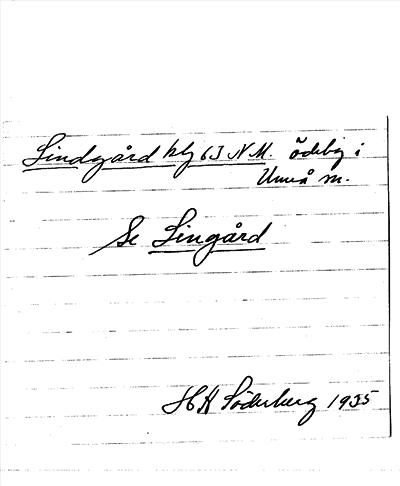 Lindgård hlg 63 N.M. Ödeby i
Umeå m.
Se Lingård
H Söderberg 1935